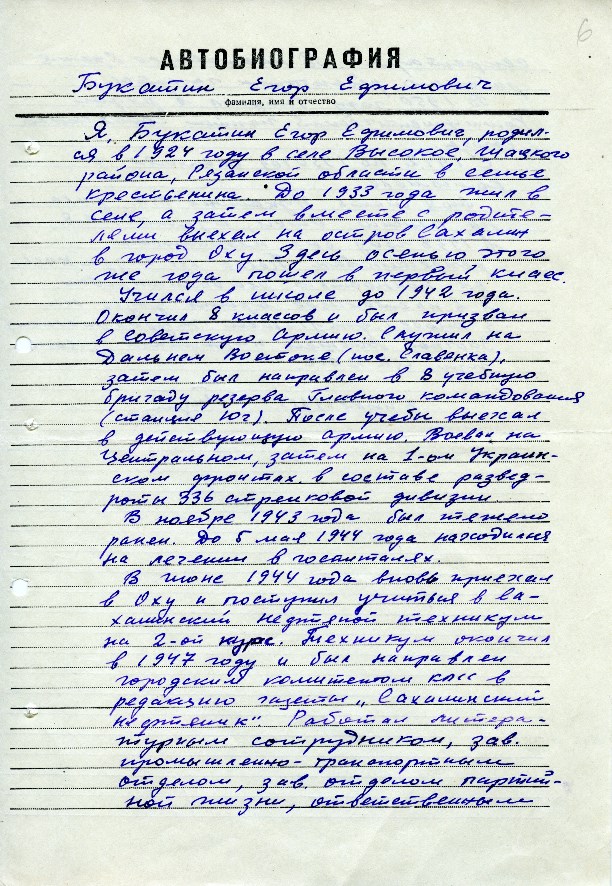 6
АВТОБИОГРАФИЯ
Букатин Егор Ефимович
фамилия, имя и отчество
Я, Букатин Егор Ефимович, родил-
ся в 1924 году в селе Высокое, Шацкого
района, Рязанской области в семье
крестьянина. До 1933 года жил в
селе, а затем вместе с родите-
лями выехал на остров Сахалин
в город Оху. Здесь осенью этого
же года пошел в первый класс.
Учился в школе до 1942 года.
Окончил 8 классов и был призван
в Советскую Армию. Служил на
Дальнем Востоке (пос. Славянка),
затем был направлен в 8 учебную
бригаду резерва Главного командования
(станция Юг). После учебы выехал
в действующую армию. Воевал на
Центральном, затем на 1-ом Украин-
ском фронтах в составе развед-
роты 336 стрелковой дивизии.
В ноябре 1943 года был тяжело
ранен. До 5 мая 1944 года находился
на лечении в госпиталях.
В июне 1944 года вновь приехал
в Оху и поступил учиться в Са-
халинский нефтяной техникум
на 2-ой курс. Техникум окончил
в 1947 году и был направлен
городским комитетом КПСС в
редакцию газеты „Сахалинский
нефтяник" Работал литера-
турным сотрудником, зав.
промышленно-транспортным
отделом, зав. отделом партий-
ной жизни, ответственным